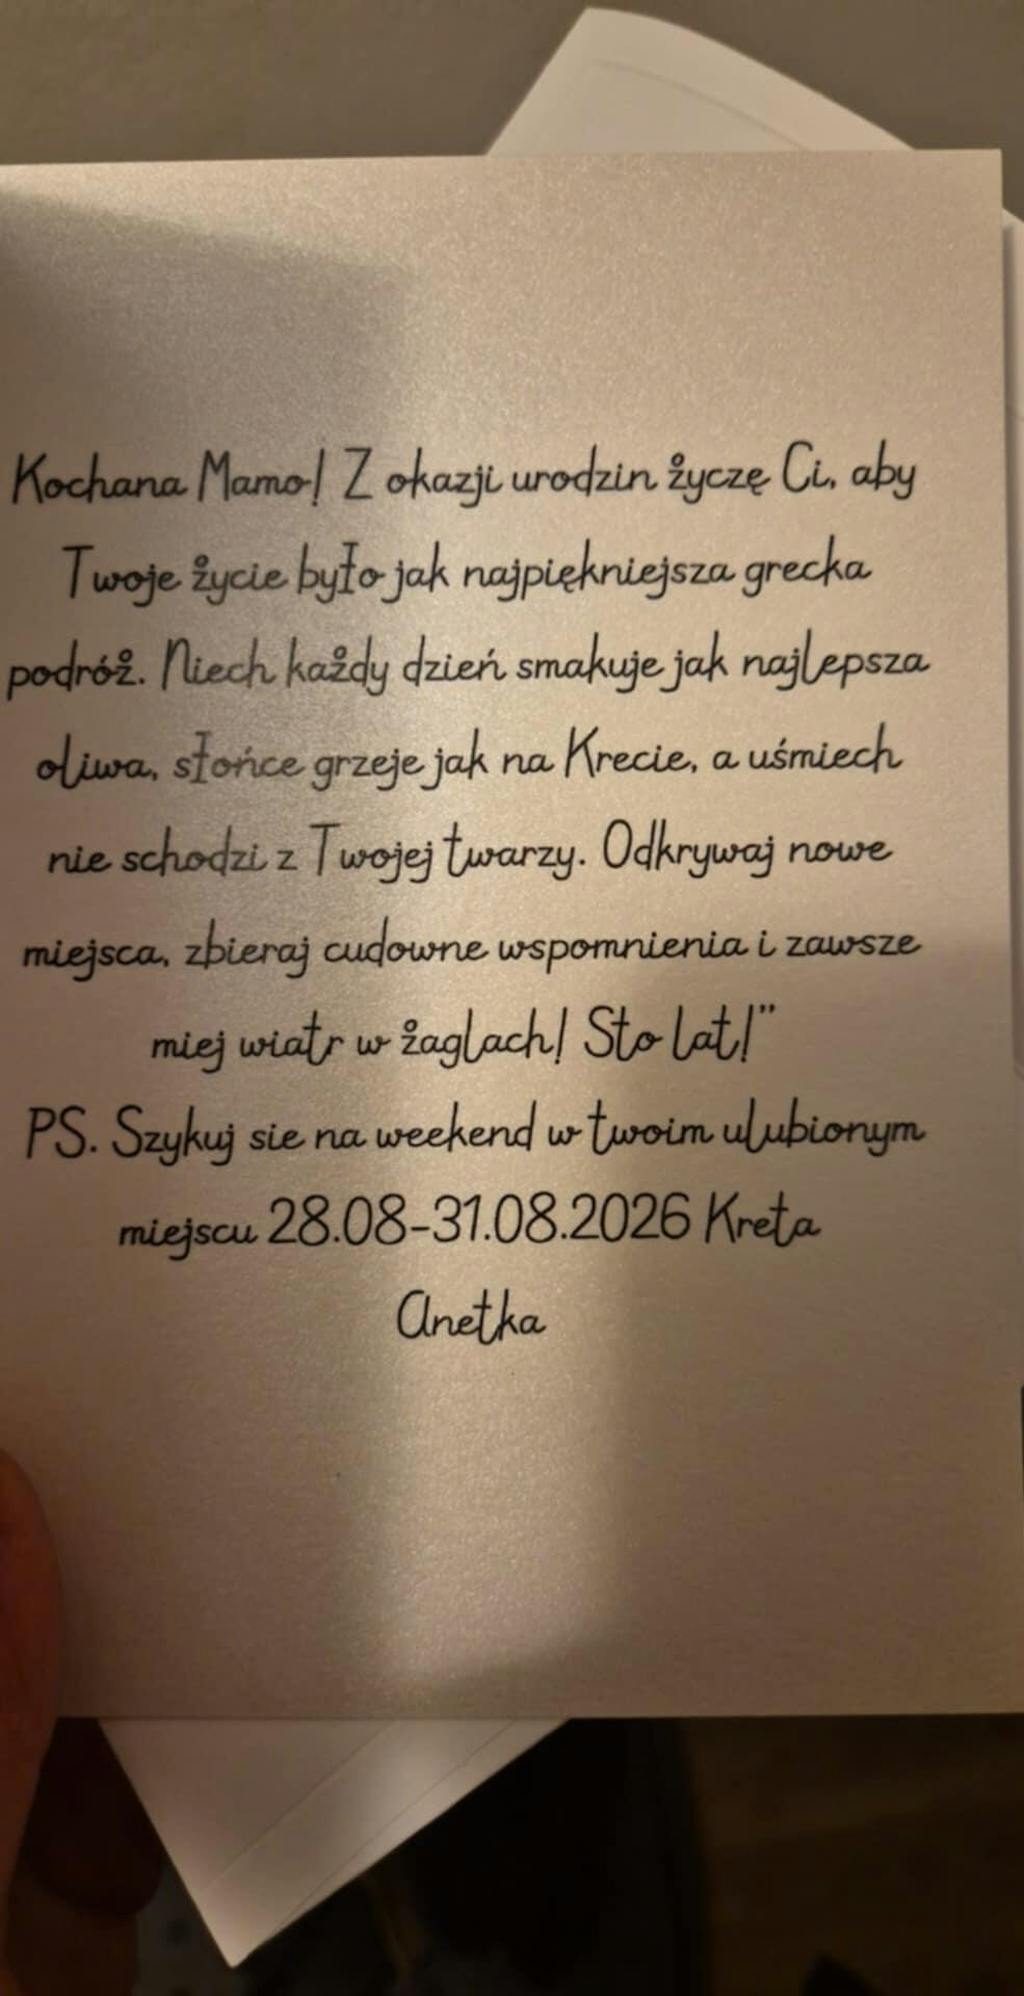 Kochana Mamo! Z okazji urodzin życzę Ci, aby
Twoje życie było jak najpiękniejsza grecka
podróż. Niech każdy dzień smakuje jak najlepsza
oliwa, słońce grzeje jak na Krecie, a uśmiech
nie schodzi z Twojej twarzy. Odkrywaj nowe
miejsca, zbieraj cudowne wspomnienia i zawsze
miej wiatr w żaglach! Sto lat!"
PS. Szykuj sie na weekend w twoim ulubionym
miejscu 28.08-31.08.2026 Kreta
Anetka